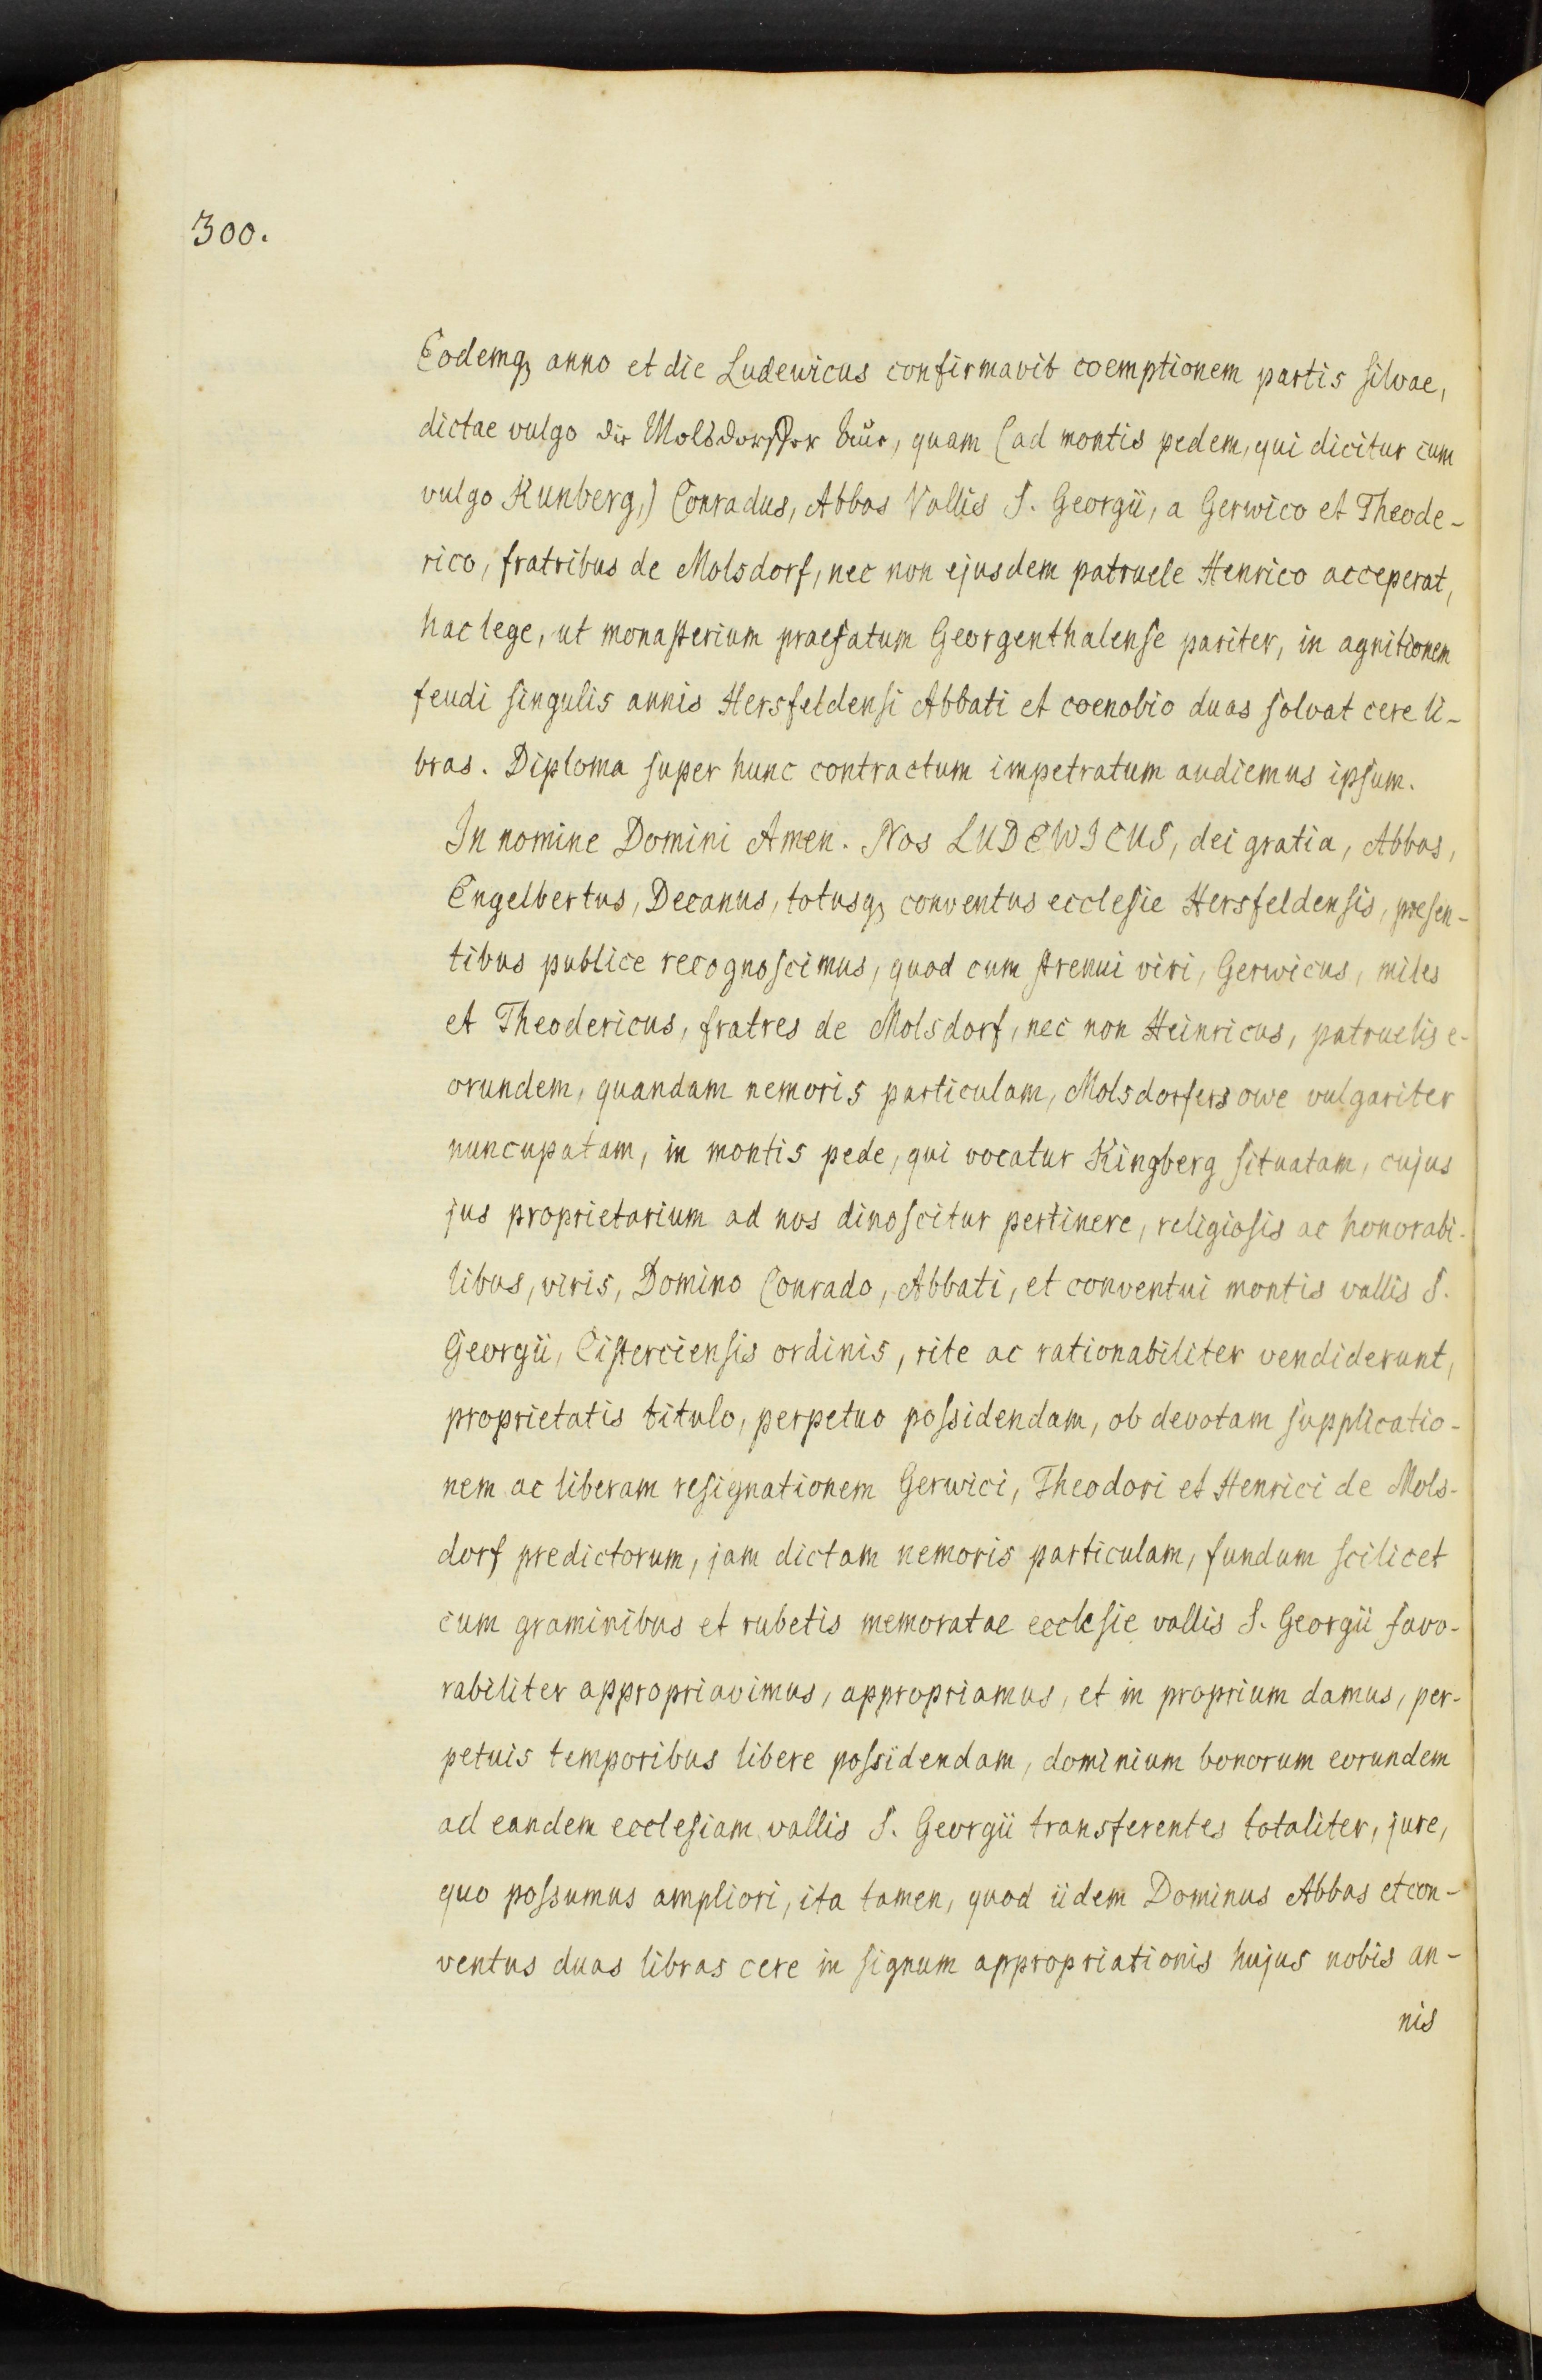 300.
Eodemq, anno et die Ludewicus confirmavit coemptionem partis silvae,
dictae vulgo die Molsdorffer, quam (ad montis pedem, qui dicitur cum
vulgo Kunberg,) Conradus, Abbas Vallis S. Georgii, a Gerwico et Theode-
rico, fratribus de Molsdorf, nec non ejusdem patruele Henrico acceperat,
hac lege, ut monasterium praefatum Georgenthalense pariter, in agnitionem
feudi singulis annis Hersfeldensi Abbati et coenobio duas solvat cere li-
bras. Diploma super hunc contractum impetratum audiemus ipsum.
In nomine Domini Amen. Nos LUDEWICUS, dei gratia, Abbas,
Engelbertus, Decanus, totusq, conventus ecclesie Hersfeldensis, presen-
tibus publice recognoscimus, quod cum strenui viri, Gerwicus, miles
et Theodericus, fratres de Molsdorf, nec non Heinricus, patruelis e-
orundem, quandam nemoris particulam, Molsdorfers owe vulgariter
nuncupatam, in montis pede, qui vocatur Kingberg situatam, cujus
jus proprietarium ad nos dinoscitur pertinere, religiosis ac honorabi-
libus, viris, Domino Conrado, Abbati, et conventui montis vallis S.
Georgii, Cisterciensis ordinis, rite ac rationabiliter vendiderunt,
proprietatis titulo, perpetuo possidendam, ob devotam supplicatio-
nem ac liberam resignationem Gerwici, Theodori et Henrici de Mols-
dorf predictorum, jam dictam nemoris particulam, fundum scilicet
cum graminibus et rubetis memoratae ecclesie vallis S. Georgii favo-
rabiliter appropriavimus, appropriamus, et in proprium damus, per-
petuis temporibus libere possidendam, dominium bonorum eorundem
ad eandem ecclesiam vallis S. Georgii transferentes totaliter, jure,
quo possumus ampliori, ita tamen, quod iidem Dominus Abbas et con-
ventus duas libras cere in signum appropriationis hujus nobis an-
nis